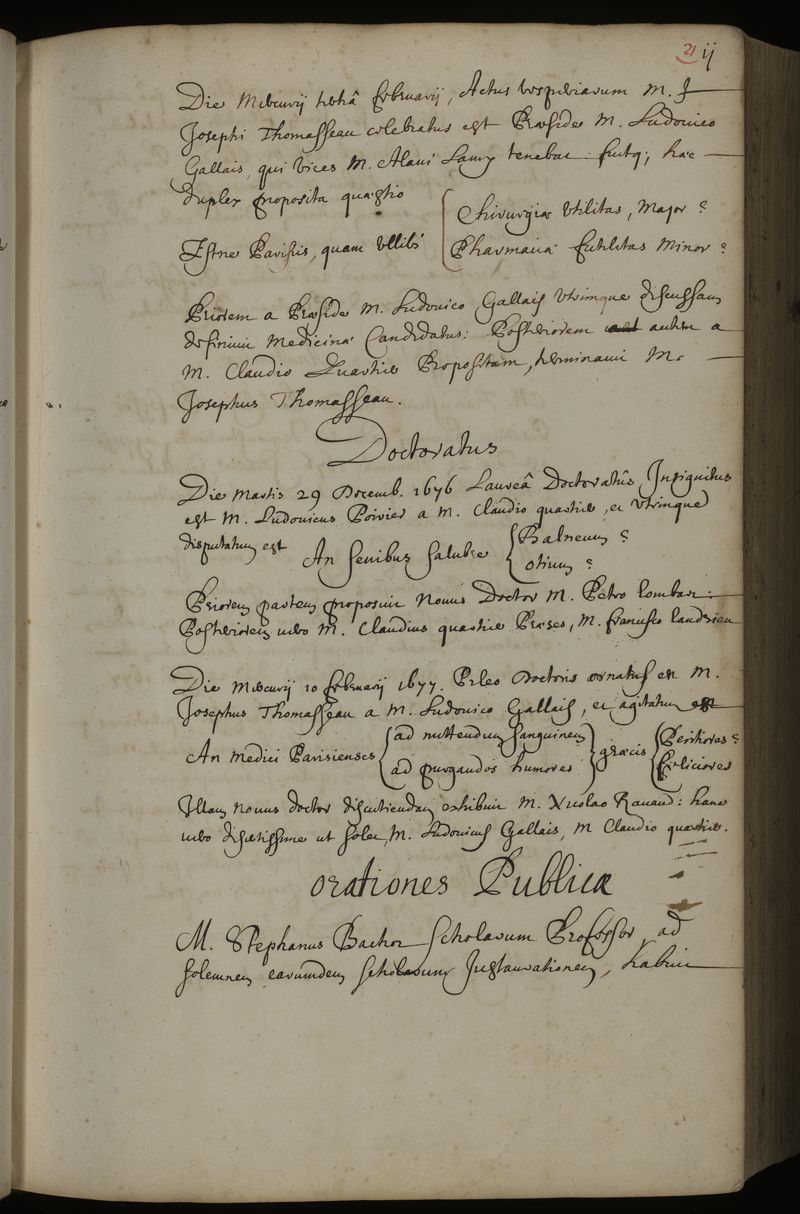 21 ij
Die Mercurij tertiâ februarij, Actus vesperiarum M. J
Josephi Thomasseau celebratus est Præside M. Ludovico
Gallais, qui vices M. Alani Lamy tenebat: fuitq; hæc
duplex proposita quæstio
Estne Parisiis, quam ullibi { Chirurgiæ Utilitas, Major?
Pharmaciæ futilitas Minor?
Priorem a Præside M. Ludovico Gallais Utrimque discussam
definiuit Medicinæ Candidatus: Posteriorem autem a
M. Claudio Quartier Propositam, terminauit M.
Josephus Thomasseau.
Doctoratus
Die Martis 29 Decemb. 1676 Laureâ Doctoratûs Insignitus
est M. Ludovicus Poirier a M. Claudio quartier, et Utrinque
disputatum est An senibus salubre { Balneum?
otium?
Priorem partem proposuit Nouus Doctor M. Petro Lombart:
Posteriorem uero M. Claudius quartier Præses, M. francisco Landrieu
Die Mercurij 10 februarij 1677. Pileo Doctoris ornatus est M.
Josephus Thomasseau a M. Ludovico Gallais, et agitatum est
An Medici Parisienses { ad mittendum sanguinem } græcis { Peritiores?
ad purgandos humores } { feliciores
Illam Nouus doctor discutiendam exhibuit M. Nicolao Rauaud: hanc
uero disertissime ut solet M. Ludovicus Gallais, M Claudio quartier.
orationes Publicæ
M. Stephanus Bachot Scholarum Professor ad
solemnem earumdem scholarum Instaurationem, habuit